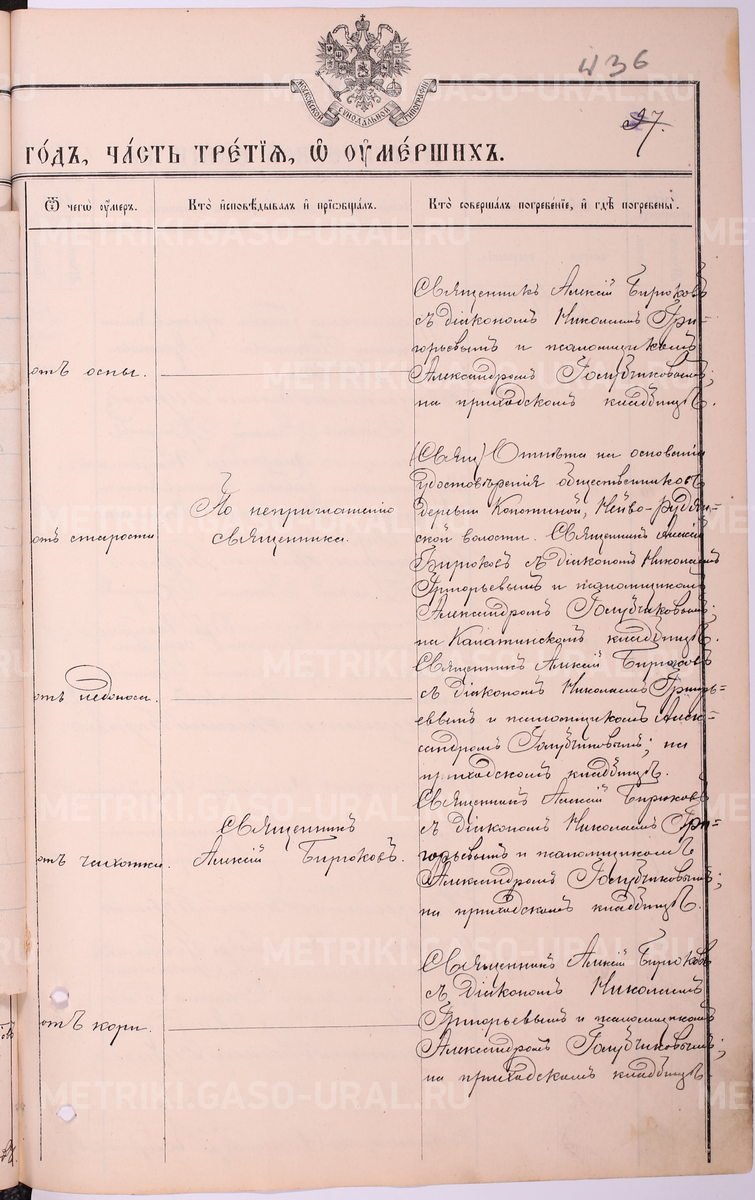 436
27.
МОСКОВСКОЙ СѴНОДАЛЬНОЙ ТИПОГРАФІИ
ГО́ДЪ, ЧА́СТЬ ТРЕ́ТІЯ, Ѽ ОУМЕ́РШИХЪ.
Ѿ чегѡ̀ оу́меръ.
Кто̀ и҆сповѣ́дывалъ и҆ прїѡбща́лъ.
Кто̀ соверша́лъ погребе́нїе, и҆ гдѣ̀ погребены̀.
отъ оспы.
Священникъ Алексій Бирюковъ
съ діакономъ Николаемъ Гри-
горьевымъ и псаломщикомъ
Александромъ Голубчиковымъ;
на приходскомъ кладбищѣ.
отъ старости
По неприглашенію
священника.
(Свящ) Отпѣта на основаніи
удостовѣренія общественниковъ
деревни Копотиной, Нейво-Рудян-
ской волости. Священникъ Алексій
Бирюковъ съ діакономъ Николаемъ
Григорьевымъ и псаломщикомъ
Александромъ Голубчиковымъ;
на Капатинскомъ кладбищѣ.
отъ недоноси.
Священникъ Алексій Бирюковъ
съ діакономъ Николаемъ Григорь-
евымъ и псаломщикомъ Алек-
сандромъ Голубчиковымъ; на
приходскомъ кладбищѣ.
отъ чахотки.
Священникъ
Алексій Бирюковъ.
Священникъ Алексій Бирюковъ
съ діакономъ Николаемъ Гри-
горьевымъ и псаломщикомъ
Александромъ Голубчиковымъ;
на приходскомъ кладбищѣ.
отъ кори.
Священникъ Алексій Бирюковъ
съ діакономъ Николаемъ
Григорьевымъ и псаломщикомъ
Александромъ Голубчиковымъ;
на приходскомъ кладбищѣ.
METRIKI.GASO-URAL.RU